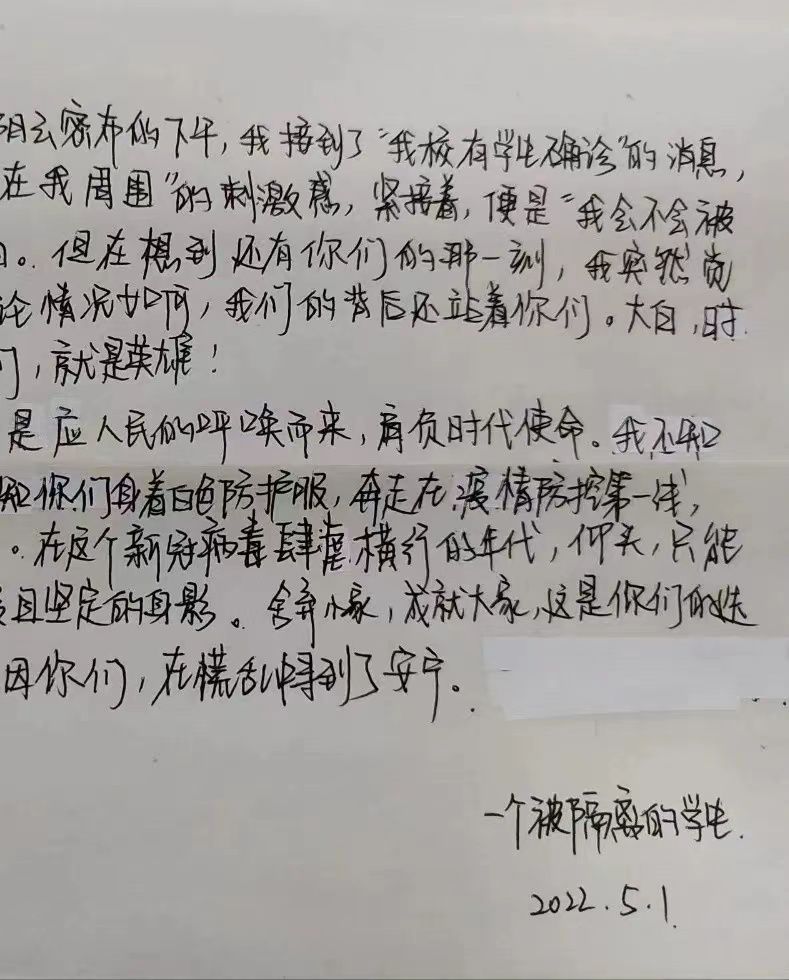 阴云密布的下午，我接到了“我校有学生确诊”的消息，
在我周围”的刺激感，紧接着，便是“我会不会被
。但在想到还有你们的那一刻，我突然觉
论情况如何，我们的背后还站着你们。大白，时
们，就是英雄！
是应人民的呼唤而来，肩负时代使命。我不知
知你们身着白色防护服，奔走在疫情防控第一线，
。在这个新冠病毒肆虐横行的年代，仰头，只能
且坚定的身影。舍弃小家，成就大家，这是你们的选
因你们，在慌乱中得到了安宁。
一个被隔离的学生.
2022.5.1.